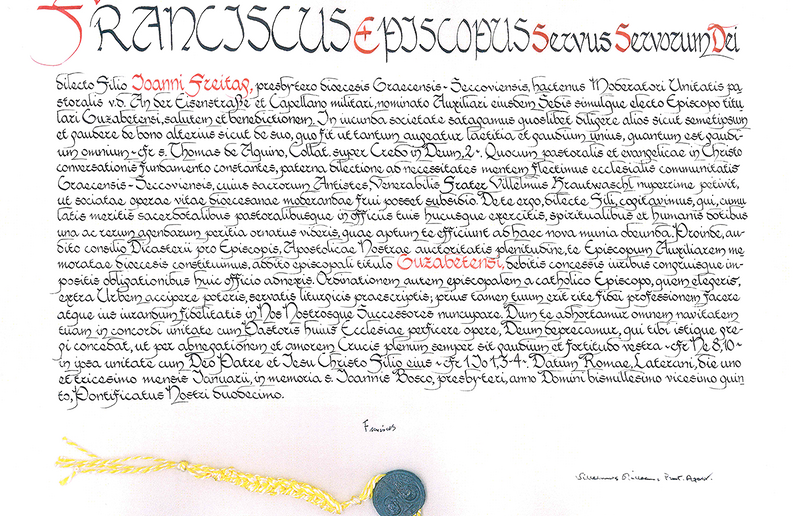 FRANCISCUS EPISCOPUS Servus Servorum Dei
dilecto Filio Ioanni Freitag, presbytero dioecesis Graecensis-Seccoviensis, hactenus Moderatori Unitatis pa
storalis v.d. An der Eisenstraße et Capellano militari, nominato Auxiliari eiusdem Sedis simulque electo Episcopo titu
lari Guzabetensi, salutem et benedictionem. In iucunda societate satagamus quoslibet diligere alios sicut semetipsum
et gaudere de bono alterius sicut de suo, quo fit ut tantum augeatur laetitia et gaudium unius, quantum est gaudi-
um omnium - cfr s. Thomas de Aquino, Collat. super Credo in Deum, 2 -. Quocum pastoralis et evangelicae in Christo
conversationis fundamento constantes, paterna dilectione ad necessitates mentem flectimus ecclesialis communitatis
Graecensis-Seccoviensis, cuius sacrorum Antistes, Venerabilis Frater Villelmus Krautwaschl nuperrime petivit,
ut sociatae operae vitae dioecesanae moderandae frui posset subsidio. De te ergo, dilecte Fili, cogitavimus, qui, cumu
latis meritis sacerdotalibus pastoralibusque in officiis tuis hucusque exercitis, spiritualibus et humanis dotibus
una ac rerum agendarum peritia ornatus videris, quae aptum te efficiunt ad haec nova munia obeunda. Proinde, au-
dito consilio Dicasterii pro Episcopis, Apostolicae Nostrae auctoritatis plenitudine, te Episcopum Auxiliarem me
moratae dioecesis constituimus, addito episcopali titulo Guzabetensi, debitis concessis iuribus congruisque im-
positis obligationibus huic officio adnexis. Ordinationem autem episcopalem a catholico Episcopo, quem elegeris,
extra Urbem accipere poteris, servatis liturgicis praescriptis; prius tamen tuum erit rite fidei professionem facere
atque ius iurandum fidelitatis in Nos Nostrosque Successores nuncupare. Dum te adhortamur omnem navitatem
tuam in concordi unitate cum Pastoris huius Ecclesiae perficere opere, Deum deprecamur, qui tibi istique gre-
gi concedat, ut per abnegationem et amorem Crucis plenum semper sit gaudium et fortitudo vestra - cfr Ne 8,10 -
in ipsa unitate cum Deo Patre et Iesu Christo Filio eius - cfr 1 Io 1,3-4 -. Datum Romae, Laterani, die uno
et tricesimo mensis Ianuarii, in memoria s. Ioannis Bosco, presbyteri, anno Domini bismillesimo vicesimo quin
to, Pontificatus Nostri duodecimo.
Franciscus